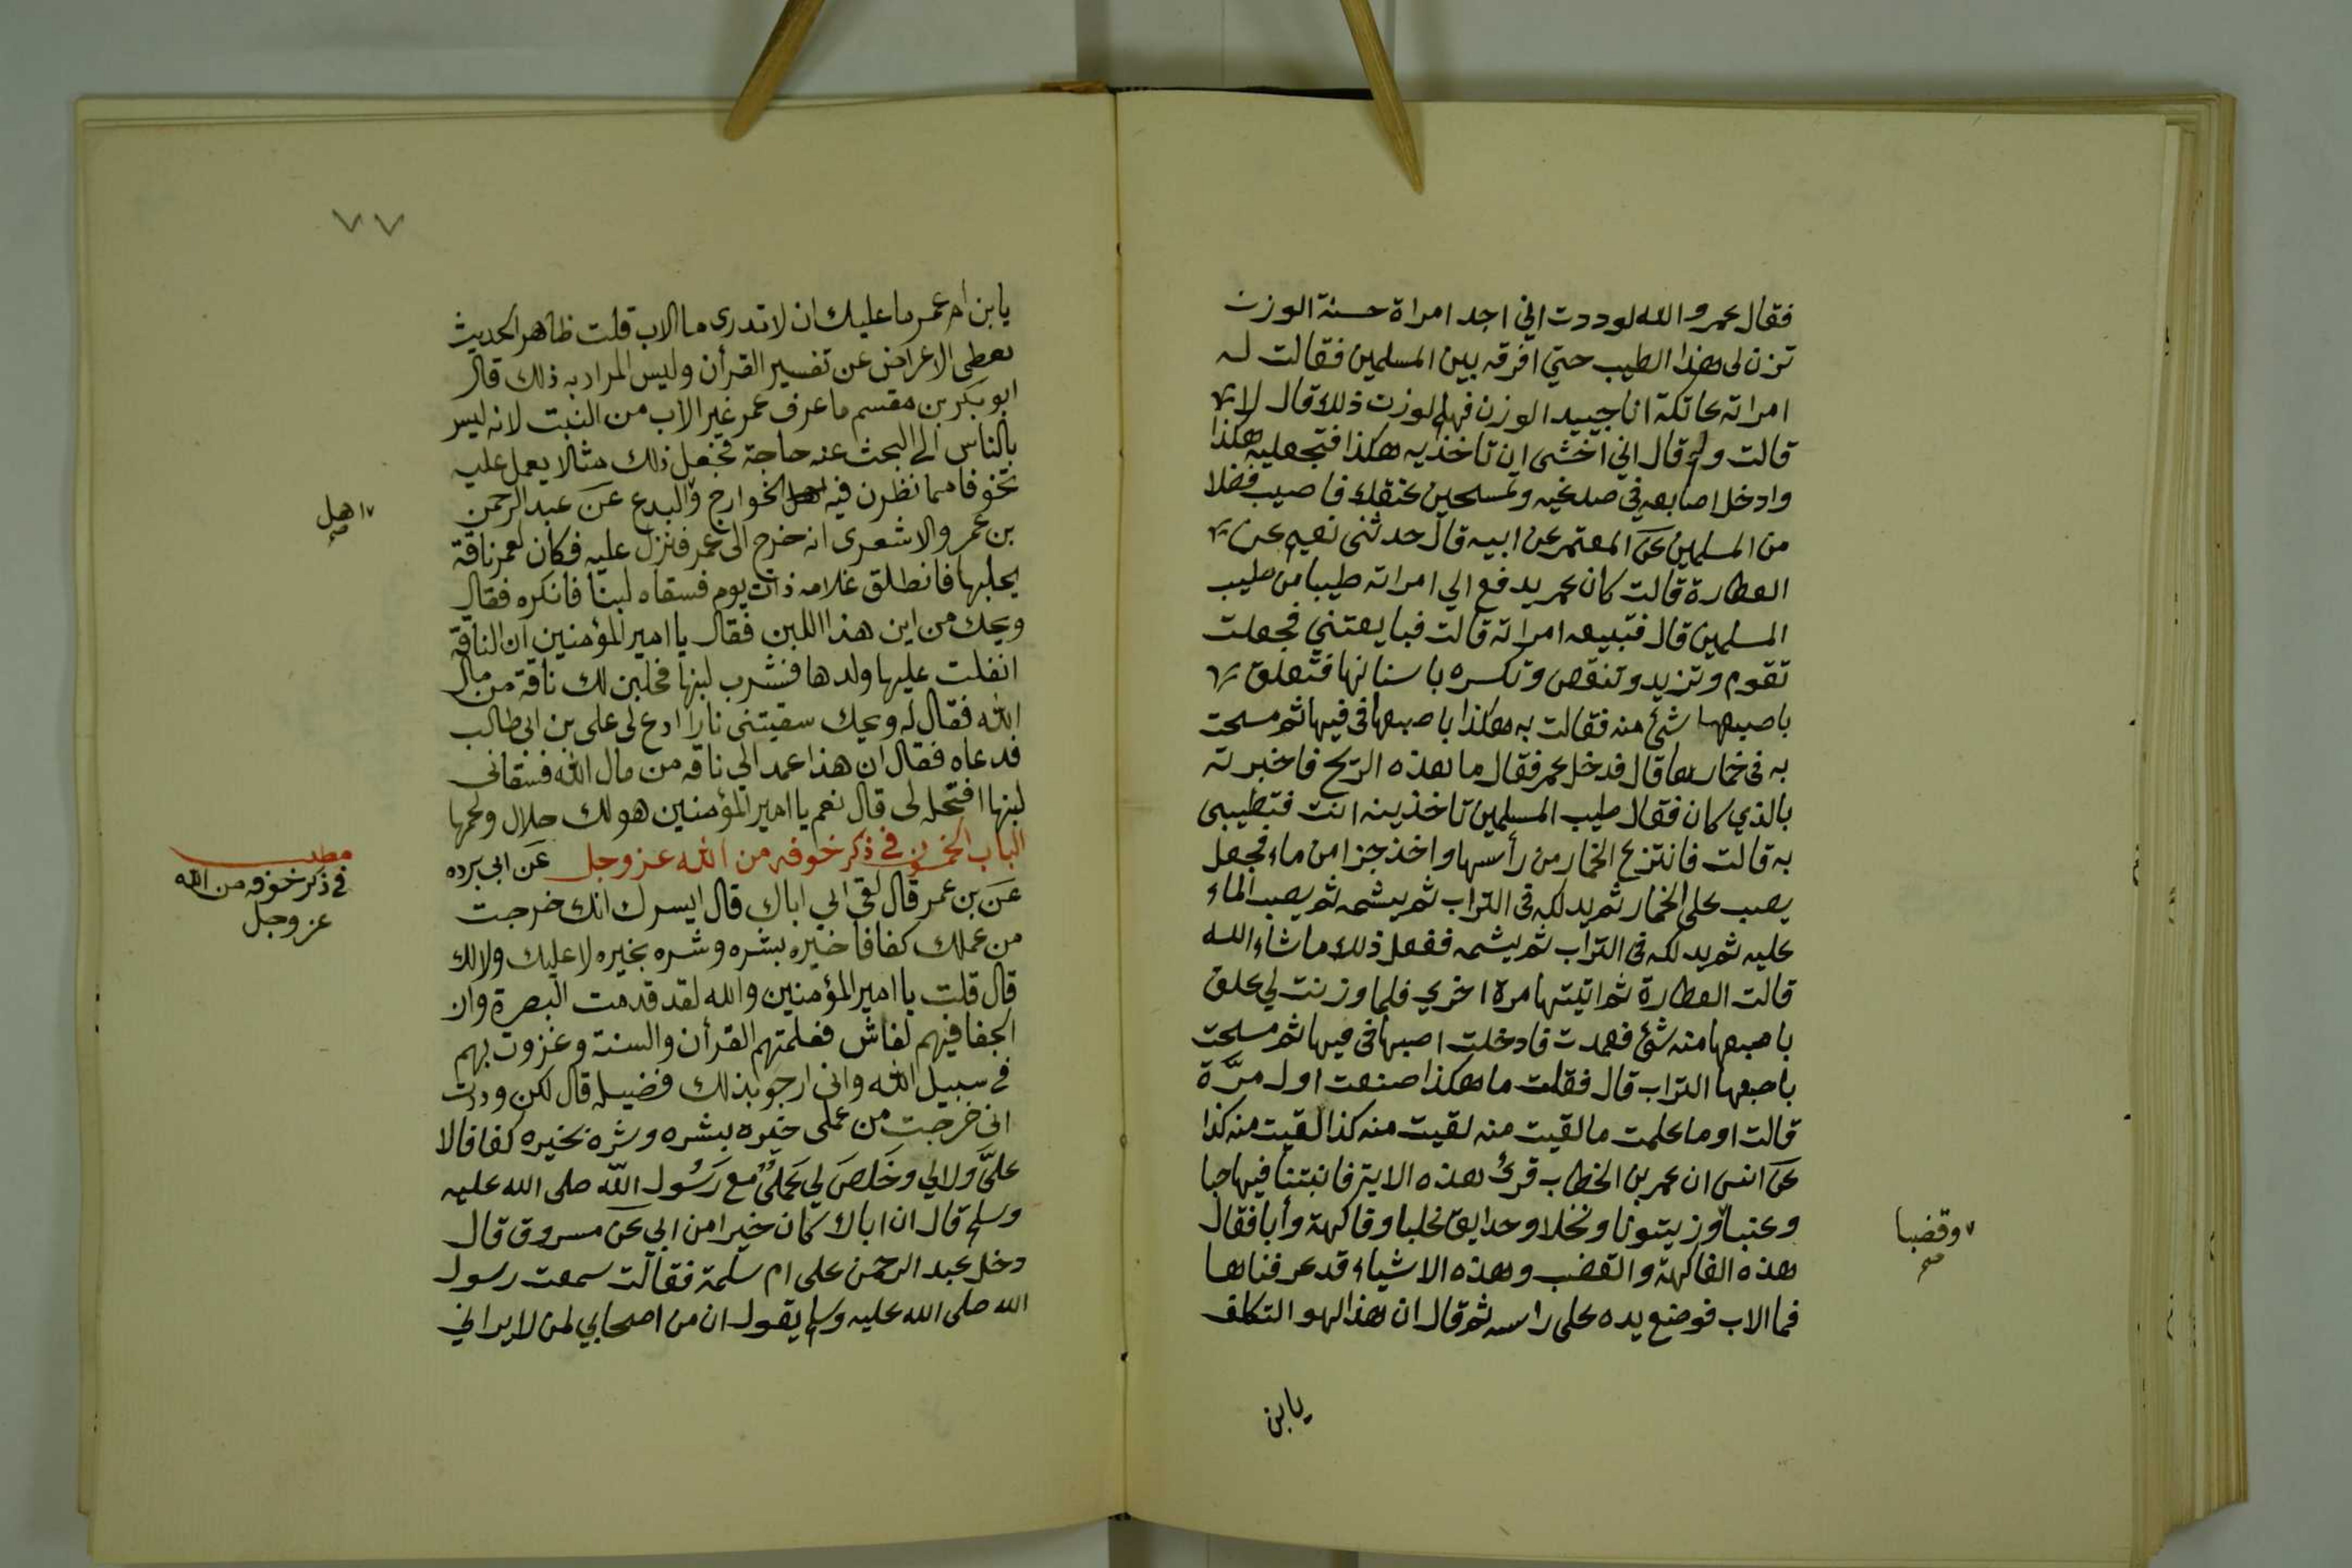 فقال عمر والله لوددت اني اجد امراة حسنة الوزن
تزن لى هذا الطيب حتي افرقه بين المسلمين فقالت له
امراته عاتكة انا جييد الوزن فهلم لوزن ذلك قال لا
قالت ولم قال اني اخشى ان تاخذيه هكذا فتجعليه هكذا
وادخل اصابعه في صدغيه وتمسحين عنقك فاصيب فضلا
من المسلمين عن المعتمر عن ابيه قال حدثنى نعيم عن
العطارة قالت كان عمر يدفع الي امراته طيبا من طيب
المسلمين قال فتبيعه امراته قالت فبايعتني فجعلت
تقوم وتزيد وتنقص وتكسره باسنانها فتعلق
باصبعها شئ منه فقالت به هكذا باصبعها في فيها ثم مسحت
به في خمارها قال فدخل عمر فقال ما هذه الريح فاخبرته
بالذي كان فقال طيب المسلمين تاخذينه انت فتطيبى
به قالت فانتزع الخمار من رأسها واخذ جزا من ماء فجعل
يصب على الخمار ثم يدلكه في التراب ثم يشمه ثم يصب الماء
عليه ثم يدلكه في التراب ثم يشمه ففعل ذلك ما شاء الله
قالت العطارة ثم اتيتها مرة اخري فلما وزنت لي علق
باصبعها منه شئ فعمدت فادخلت اصبعها في فيها ثم مسحت
باصبعها التراب قال فقلت ما هكذا صنعت اول مرّة
قالت اوما علمت ما لقيت منه لقيت منه كذا لقيت منه كذا
عن انس ان عمر بن الخطاب قرئ هذه الاية فانبتنا فيها حبا
وعنبا وزيتونا ونخلا وحدايق غلبا وفاكهة وأبا فقال
وقضبا
صح
هذه الفاكهة والقضب وهذه الاشياء قد عرفناها
فما الاب فوضع يده على راسه ثم قال ان هذا لهو التكلف
يابن
٧٧
يابن ام عمر ما عليك ان لا تدرى ما الاب قلت ظاهر الحديث
يعطى الاعراض عن تفسير القرأن وليس المراد به ذلك قال
ابو بكر بن مقسم ما عرف عمر غير الاب من النبت لانه ليس
بالناس الى البحث عنه حاجة فجعل ذلك مثالا يعمل عليه
تخوفا مما نظرن فيه اهل الخوارج والبدع عن عبد الرحمن
اهل
صح
بن عمر والاشعرى انه خرج الى عمر فنزل عليه فكان لعمر ناقة
يحلبها فانطلق غلامه ذات يوم فسقاه لبنا فانكره فقال
ويحك من اين هذا اللبن فقال يا امير المؤمنين ان الناقة
انفلت عليها ولدها فشرب لبنها فحلبن لك ناقة من مال
الله فقال له ويحك سقيتنى نارا ادع لى على بن ابى طالب
فدعاه فقال ان هذا عمد الي ناقه من مال الله فسقانى
لبنها افتحله لى قال نعم يا امير المؤمنين هو لك حلال ولحمها
الباب الخمسون فى ذكر خوفه من الله عز وجل عن ابى برده
مطلب
فى ذكر خوفه من الله
عز وجل
عن بن عمر قال لقى ابي اباك قال ايسرك انك خرجت
من عملك كفافا خيره بشره وشره بخيره لا عليك ولا لك
قال قلت يا امير المؤمنين والله لقد قدمت البصرة وان
الجفا فيهم لفاش فعلمتهم القرأن والسنة وغزوت بهم
فى سبيل الله وانى ارجو بذلك فضيله قال لكن وددت
انى خرجت من عملى خيره بشره وشره بخيره كفافا لا
علىَّ ولا لي وخلص لي عملي مع رسول الله صلى الله عليه
وسلم قال ان اباك كان خيرا من ابي عن مسروق قال
دخل عبد الرحمن على ام سلمة فقالت سمعت رسول
الله صلى الله عليه وسلم يقول ان من اصحابي لمن لا يراني